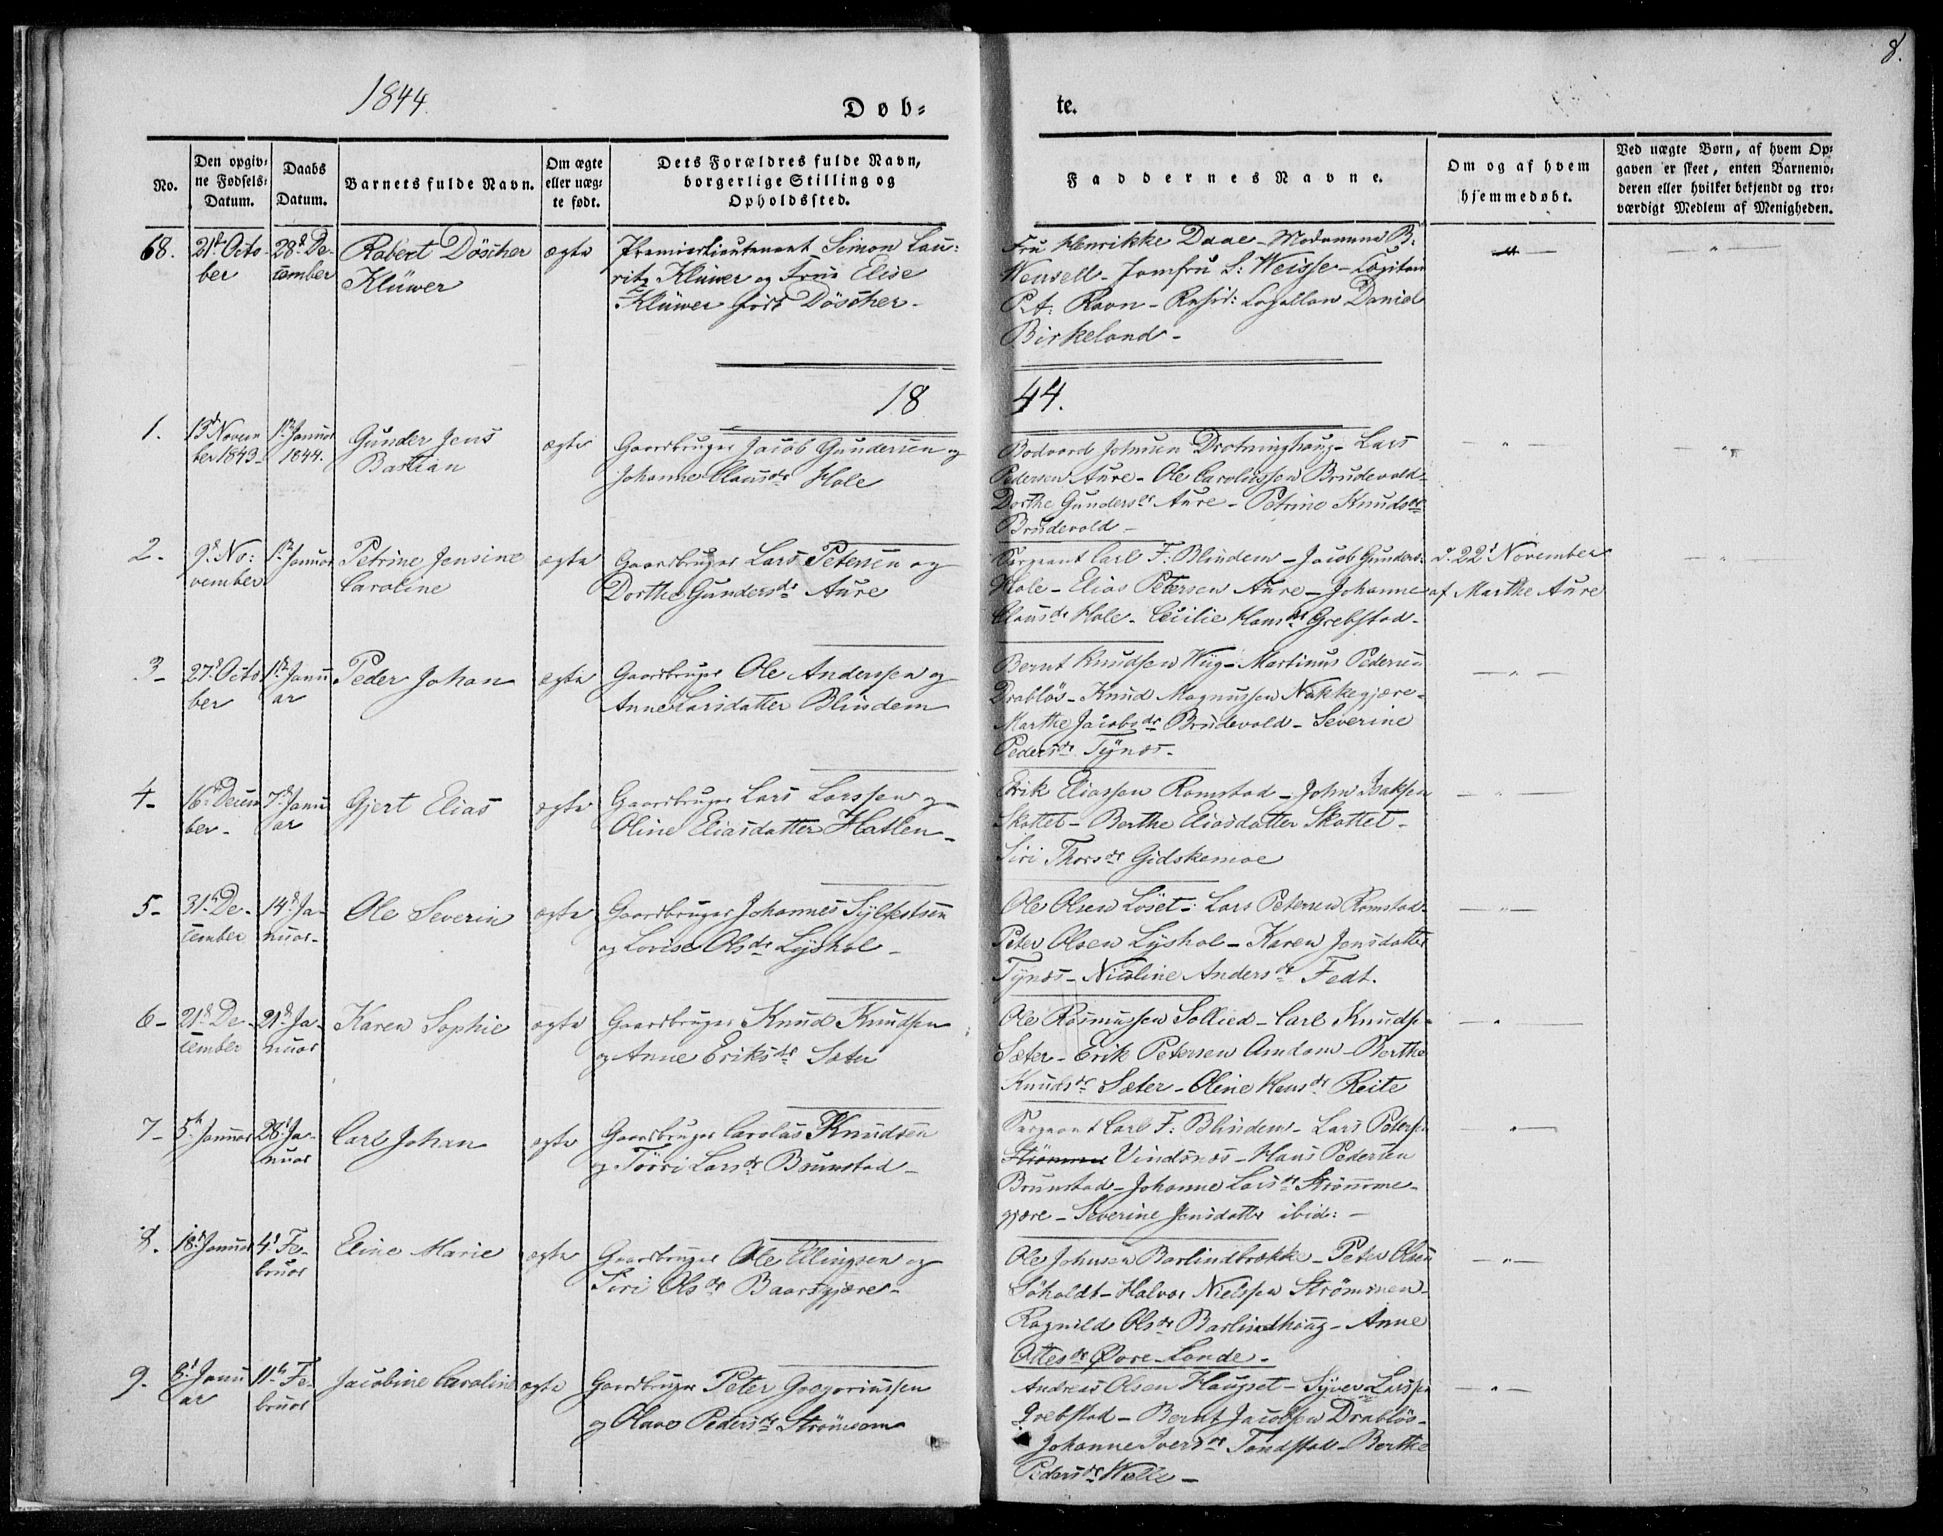 8.
1844.
Døb=
te.
No.
Den opgiv=
ne Fødsels=
Datum.
Daabs
Datum.
Barnets fulde Navn.
Om ægte
eller uæg=
te født.
Dets Forældres fulde Navn,
borgerlige Stilling og
Opholdssted.
Faddernes Navne.
Om og af hvem
hjemmedøbt.
Ved uægte Børn, af hvem Op=
gaven er skeet, enten Barnemo=
deren eller hvilket bekjendt og tro=
værdigt Medlem af Menigheden.
68.
21d Octo
ber
28d De-
cember
Robert Döscher
Klüwer
ægte
Premierlieutenant Simon Lau:
ritz Klüwer og Frue Elise
Klüwer født Döscher.
Fru Henrikke Daae - Madamme B:
Wensell - Jomfru S: Weisse - Capitain
Pet: Ravn - Resid: Capellan Daniel
Birkeland -
18
44.
1.
13d Novem
ber 1843
1ste Januar
1844.
Gunder Jens
Bastian
ægte
Gaardbruger Jacob Gundersen og
Johanne Clausdr Hole
Bodvard Johnsen Drotninghaug - Lars
Pedersen Aure - Ole Carolussen Brudevold -
Dorthe Gundersdr Aure - Petrine Knudsdr
Brudevold -
2-
9d No:
vember
1ste Januar
Petrine Jensine
Caroline
ægte
Gaardbruger Lars Petersen og
Dorthe Gundersdr Aure
Sergeant Carl F: Blindem - Jacob Gunders:
Hole - Elias Petersen Aure - Johanne
Clausdr Hole - Cecilie Hansdr Grebstad -
d. 22d November
af Marthe Aure
3-
27d Octo
ber
1ste Janu
ar
Peder Johan
ægte
Gaardbruger Ole Anderssen og
Anne Larsdatter Blindem
Bernt Knudsen Wiig - Martinus Pedersen
Drabløs - Knud Magnussen Nakkegjære -
Marthe Jacobsdr Brudevold - Severine
Pedersdr Tynæs -
4-
16d Decem
ber -
7d Janu
ar
Gjert Elias
ægte
Gaardbruger Lars Larssen og
Oline Eliasdatter Hatlen -
Erik Eliassen Ramstad - John Isaksen
Skottet - Berthe Eliasdatter Skottet -
Siri Thorsdr Gidskemoe
5-
31d De-
cember
14d Ja-
nuar -
Ole Severin
ægte
Gaardbruger Johannes Sylfestsen
og Lovise Olsdr Lyshol -
Ole Olsen Løset - Lars Petersen Ramstad -
Peter Olsen Lyshol - Karen Jensdatter
Tynæs - Nicoline Andersdr Fedt.
6-
21d De-
cember
21d Ja-
nuar
Karen Sophie
ægte
Gaardbruger Knud Knudsen
og Anne Eriksdr Sæter
Ole Rasmussen Sollied - Carl Knudsen
Sæter - Erik Petersen Amdam - Berthe
Knudsdr Sæter - Oline Hansdr Reite
7-
5te Januar
28d Ja-
nuar
Carl Johan
ægte
Gaardbruger Carolus Knudsen
og Törri Larsdr Brunstad -
Sergeant Carl F: Blindem - Lars Petersen
Strømme Vindsnes - Hans Pedersen
Brunstad - Johanne Larsdr Strømme-
gjære - Severine Jensdatter ibid: -
8.
18d Januar
4d Fe-
bruar
Eline Marie
ægte
Gaardbruger Ole Ellingsen og
Siri Olsdr Baardgjære -
Ole Johnsen Barlindbrække - Peter Olsen
Søholdt - Halvor Nielsen Strømmen -
Ragnild Olsdr Barlindhaug - Anne
Ottesdr Øvre Lande -
9-
8d Janu
ar
11te Fe-
bruar
Jacobine Caroline
ægte
Gaardbruger Peter Gregoriussen
og Olave Pedersdr Strømeom
Andreas Olsen Haugset - Syver Larssen
Grebstad - Bernt Jacobsen Drabløs -
Johanne Iversdr Tandstad - Berthe
Pedersdr Welle -